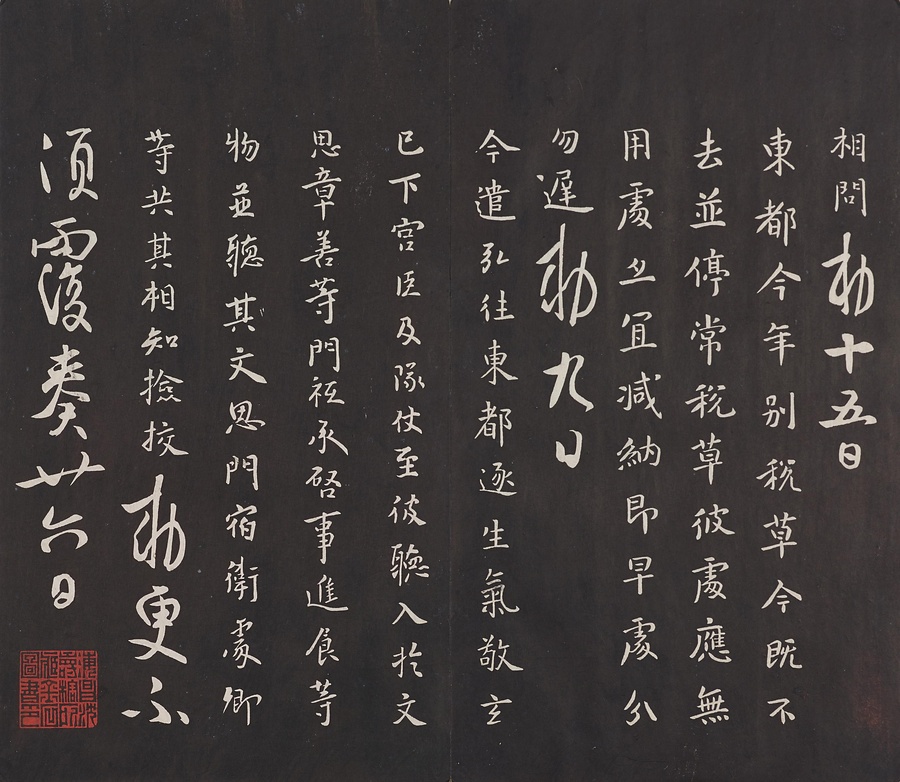 相問敕十五日
東都今年別税草今既不
去並停常税草彼處應無
用處亦宜減納即早處分
勿遲敕九日
今遣弘往東都逐生氣敬玄
已下宮臣及隊仗至彼聽入於文
思章善等門祗承啓事進食等
物並聽其文思門宿衛處卿
等共其相知撿挍敕更不
須覆奏卅六日